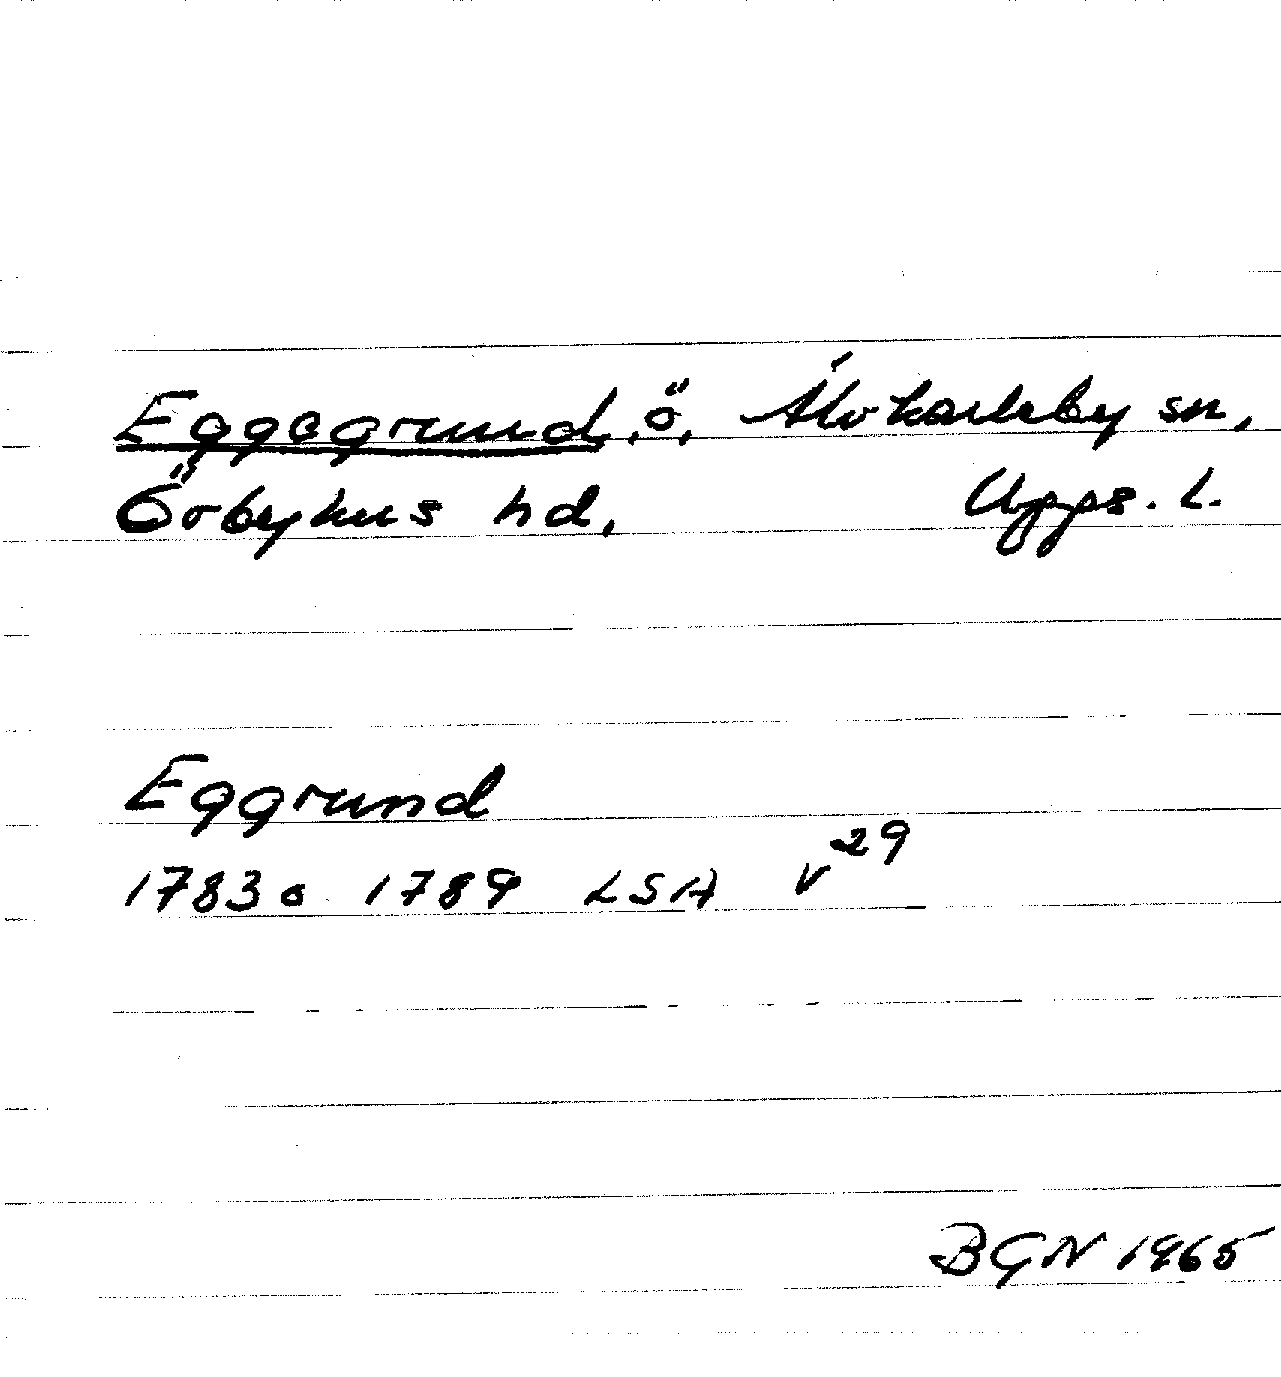 Eggegrund, ö, Älvkarleby sn,
Örbyhus hd, Upps. l.
Eggrund
1783 o 1789 LSA V29
BGN 1965